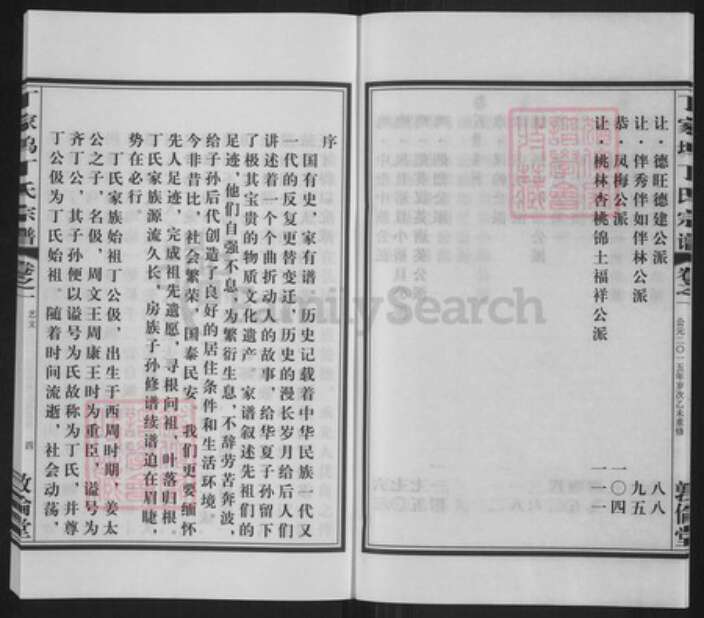 丁家坞丁氏宗谱 卷之一
公元二〇一五年岁次乙未重修
敦倫堂
让·德旺德建公派 八八
让·伴秀伴如伴林公派 九五
恭·凤梅公派 一〇四
让·桃林杏桃锦土福祥公派 一一一
序
国有史，家有谱，历史记载着中华民族一代又
一代的反复更替变迁，历史的漫长岁月给后人们
讲述着一个个曲折动人的故事，给华夏子孙留下
了极其宝贵的物质文化遗产，家谱叙述先祖们的
足迹，他们自强不息，为繁衍生息，不辞劳苦奔波，
给子孙后代创造了良好的居住条件和生活环境，
今非昔比，社会繁荣，国泰民安。我们更要缅怀
先人足迹，完成祖先遗愿，寻根问祖，叶落归根。
丁氏家族源流久长，房族子孙修谱续谱迫在眉睫，
势在必行。
丁氏家族始祖丁公伋，出生于西周时期，姜太
公之子，名伋，周文王周康王时为重臣，谥号为
齐丁公，其子孙便以谥号为氏故称为丁氏，并尊
丁公伋为丁氏始祖。随着时间流逝，社会动荡，
丁家坞丁氏宗谱 卷之一
艺文
四
敦倫堂
FamilySearch